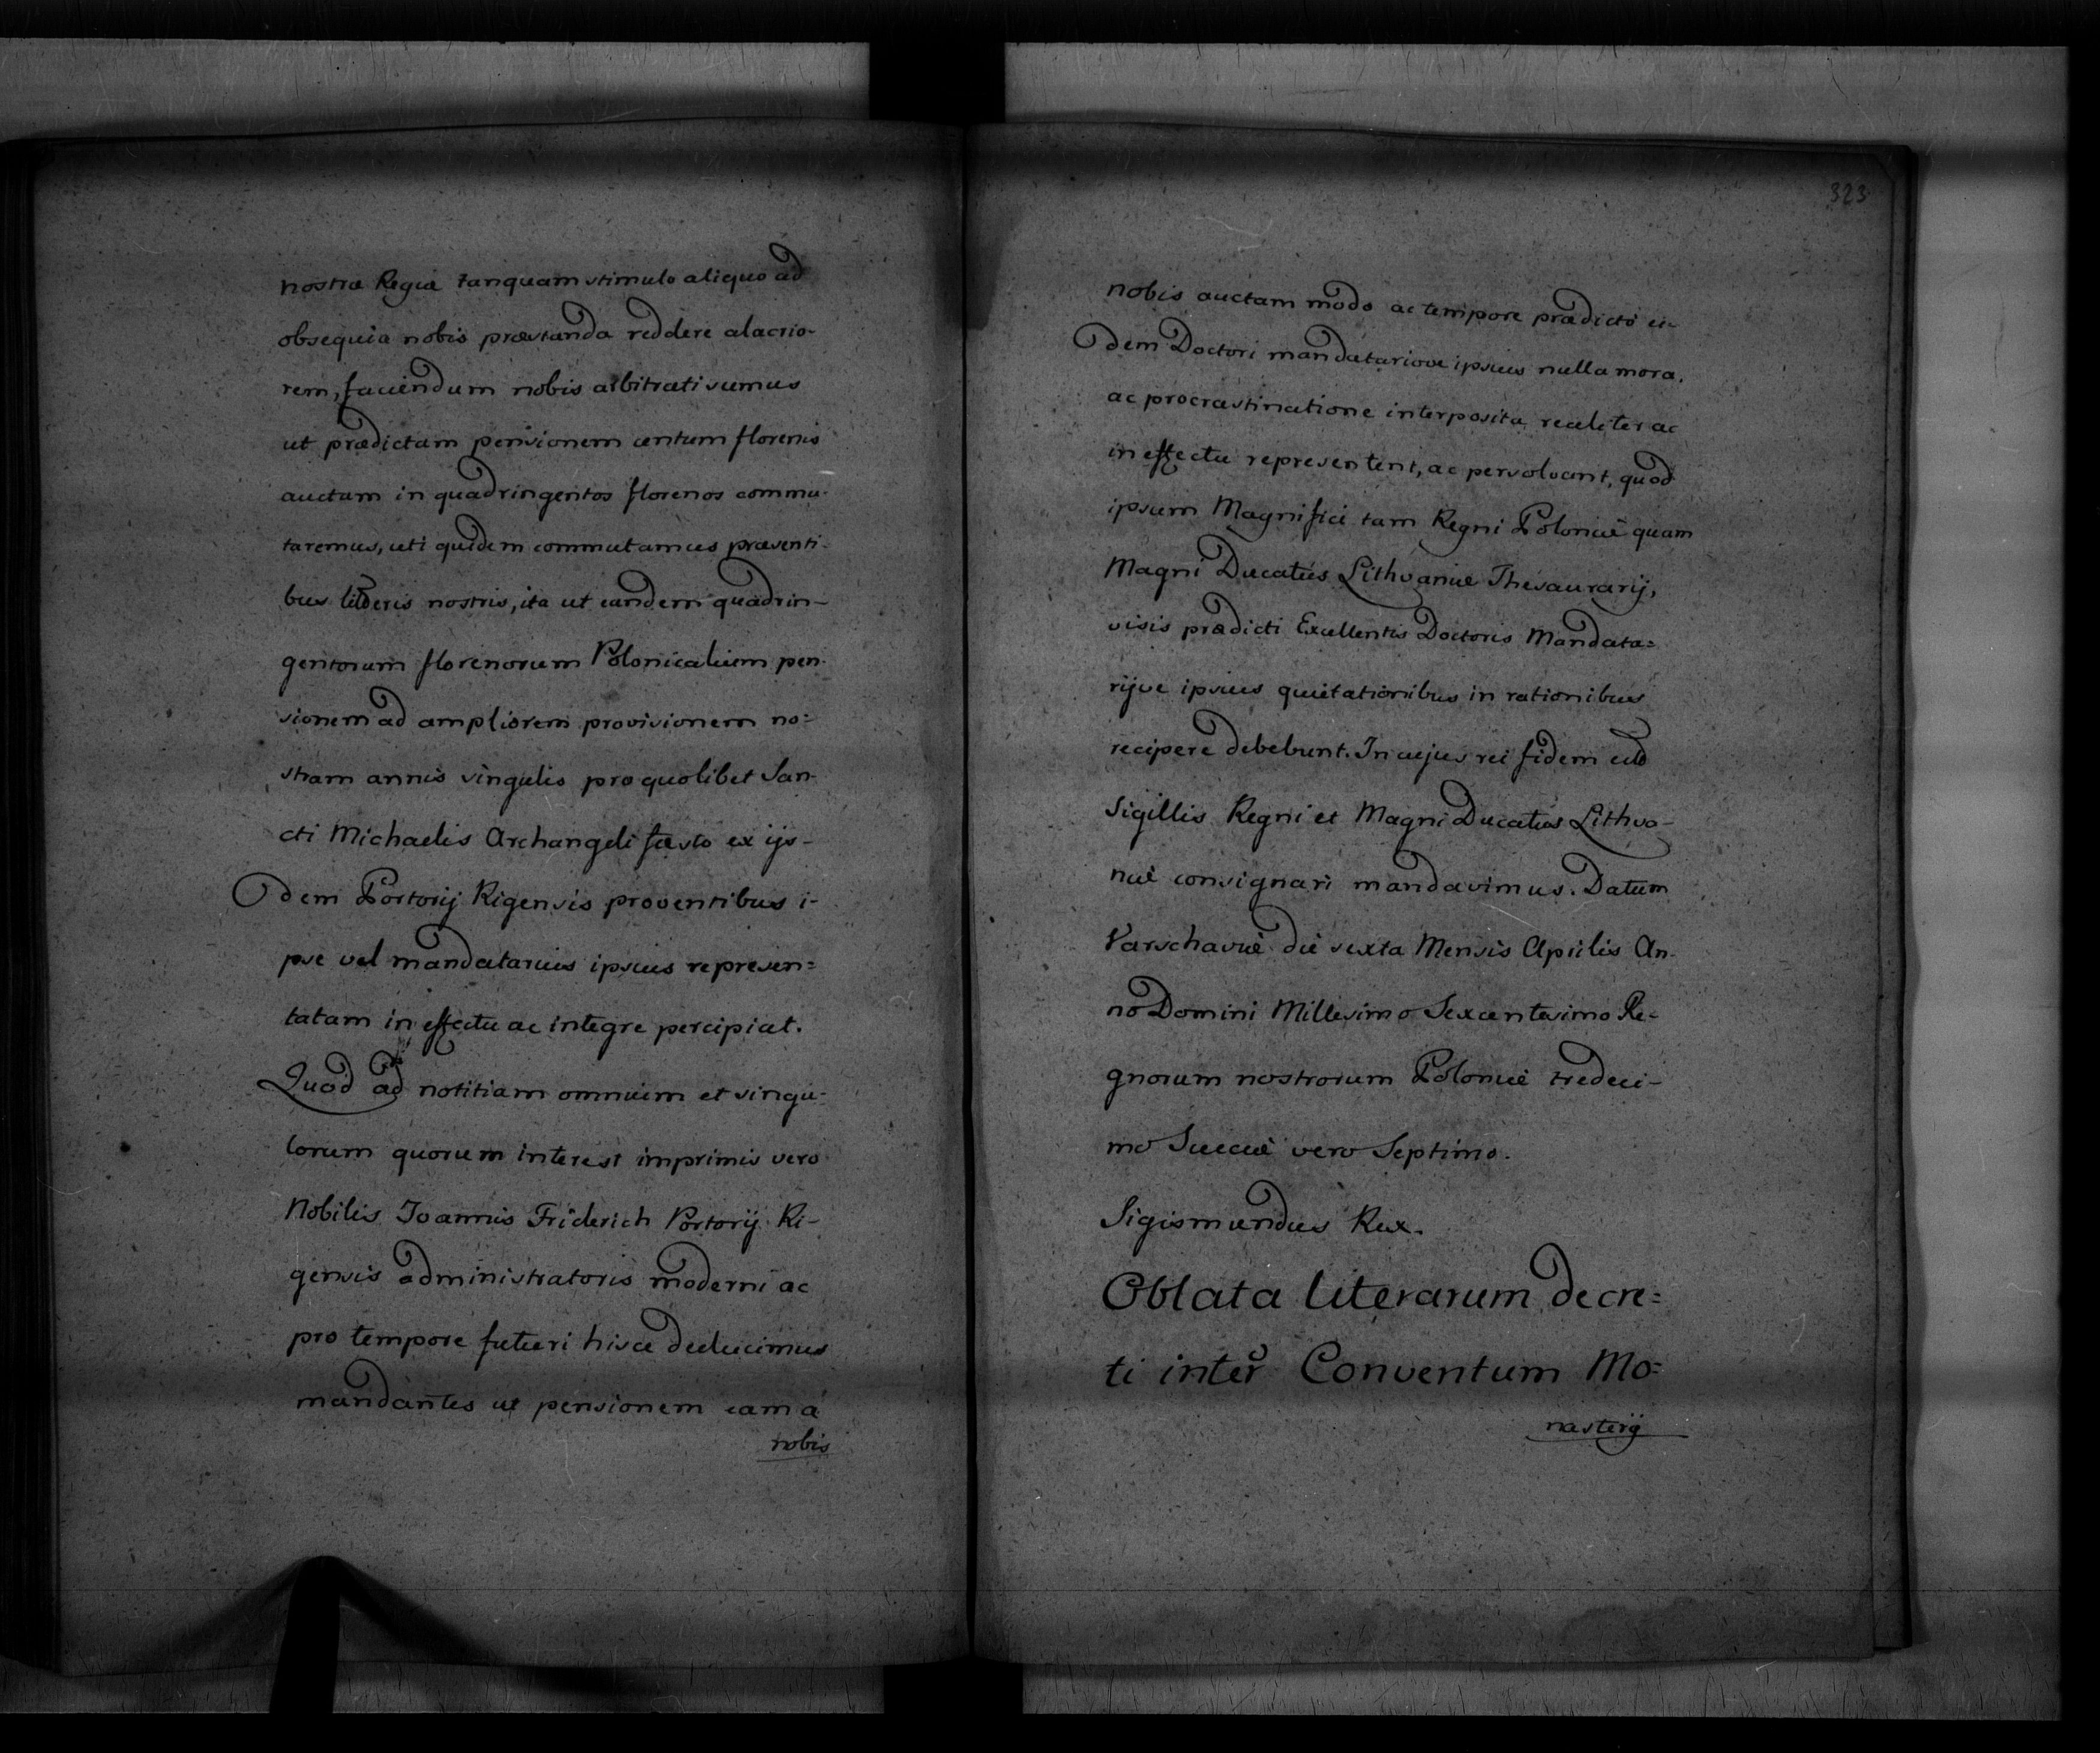 nostræ Regiæ tanquam stimulo aliquo ad
obsequia nobis præstanda reddere alacrio-
rem, faciendum nobis arbitrati sumus
ut prædictam pensionem centum florenis
auctam in quadringentos florenos commu-
taremus, uti quidem commutamus præsenti-
bus literis nostris, ita ut eandem quadrin-
gentorum florenorum Polonicalium pen-
sionem ad ampliorem provisionem no:
stram annis singulis pro quolibet San-
cti Michaelis Archangeli festo ex ijs-
dem Portorij Rigensis proventibus i-
pse vel mandatarius ipsius represen=
tatam in effectu ac integre percipiat.
Quod ad notitiam omnium et singu-
lorum quorum interest imprimis vero
Nobilis Ioannis Friderich Portorij Ri-
gensis administratoris moderni ac
pro tempore futuri hisce deducimus
mandantes ut pensionem eam a
nobis
323
nobis auctam modo ac tempore prædicto ei-
dem Doctori mandatariove ipsius nulla mora,
ac procrastinatione interposita realiter ac
in effectu representent, ac persolvant, quod
ipsum Magnifici tam Regni Poloniæ quam
Magni Ducatus Lithvaniæ Thesaurarij,
visis prædicti Excellentis Doctoris Mandata=
rijve ipsius quietationibus in rationibus
recipere debebunt. In cujus rei fidem
Sigillis Regni et Magni Ducatus Lithva-
niæ consignari mandavimus. Datum
Varschaviæ die sexta Mensis Aprilis An-
no Domini Millesimo Sexcentesimo Re-
gnorum nostrorum Poloniæ tredeci-
mo Sueciæ vero Septimo.
Sigismundus Rex.
Oblata literarum decre=
ti inter Conventum Mo=
nasterij